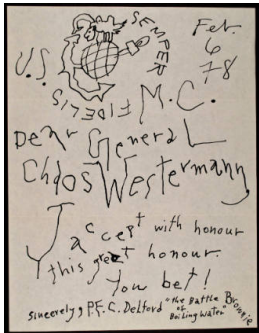 SEMPER
FIDELIS
Feb.
6
78
U.S. M.C.
Dear General
Chaos Westermann,
I accept with honour
this great honour.
You bet!
Sincerely, P.F.C. Delford "the Battle of Boiling Water" Brownie